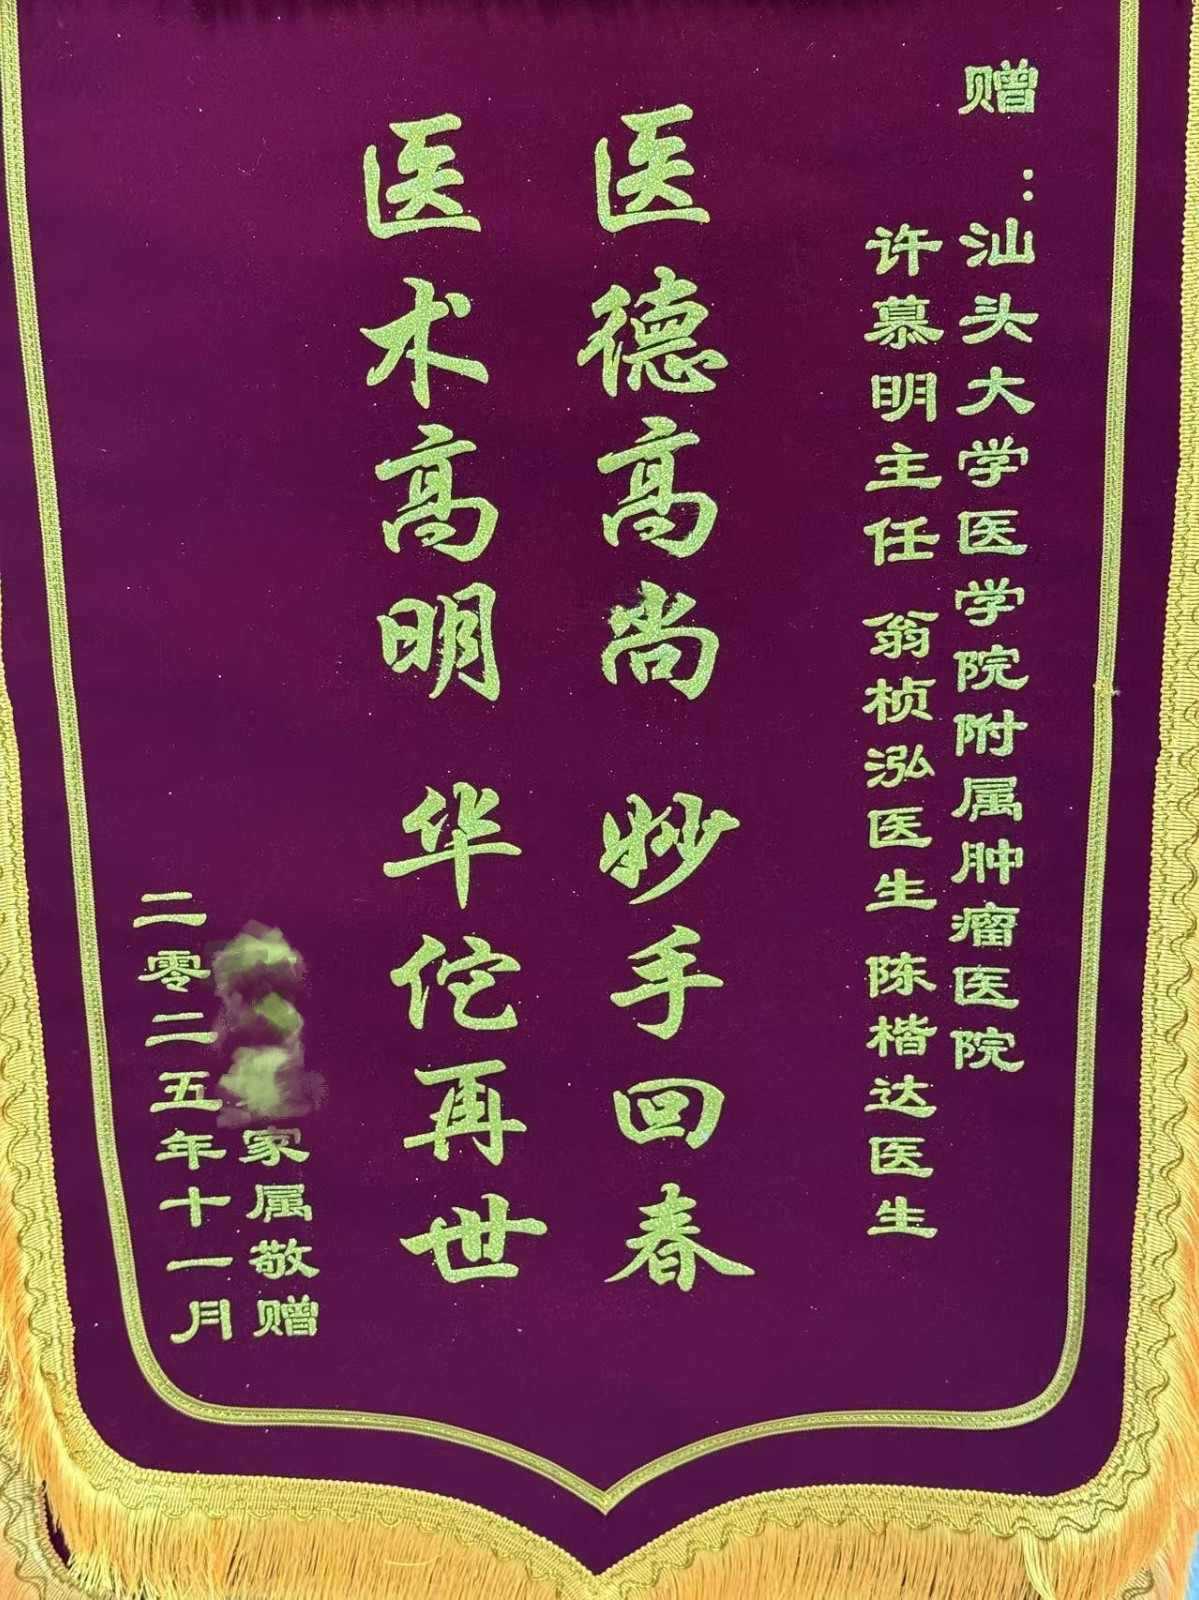 赠：汕头大学医学院附属肿瘤医院
许慕明主任 翁桢泓医生 陈楷达医生
医德高尚 妙手回春
医术高明 华佗再世
家属敬赠
二零二五年十一月